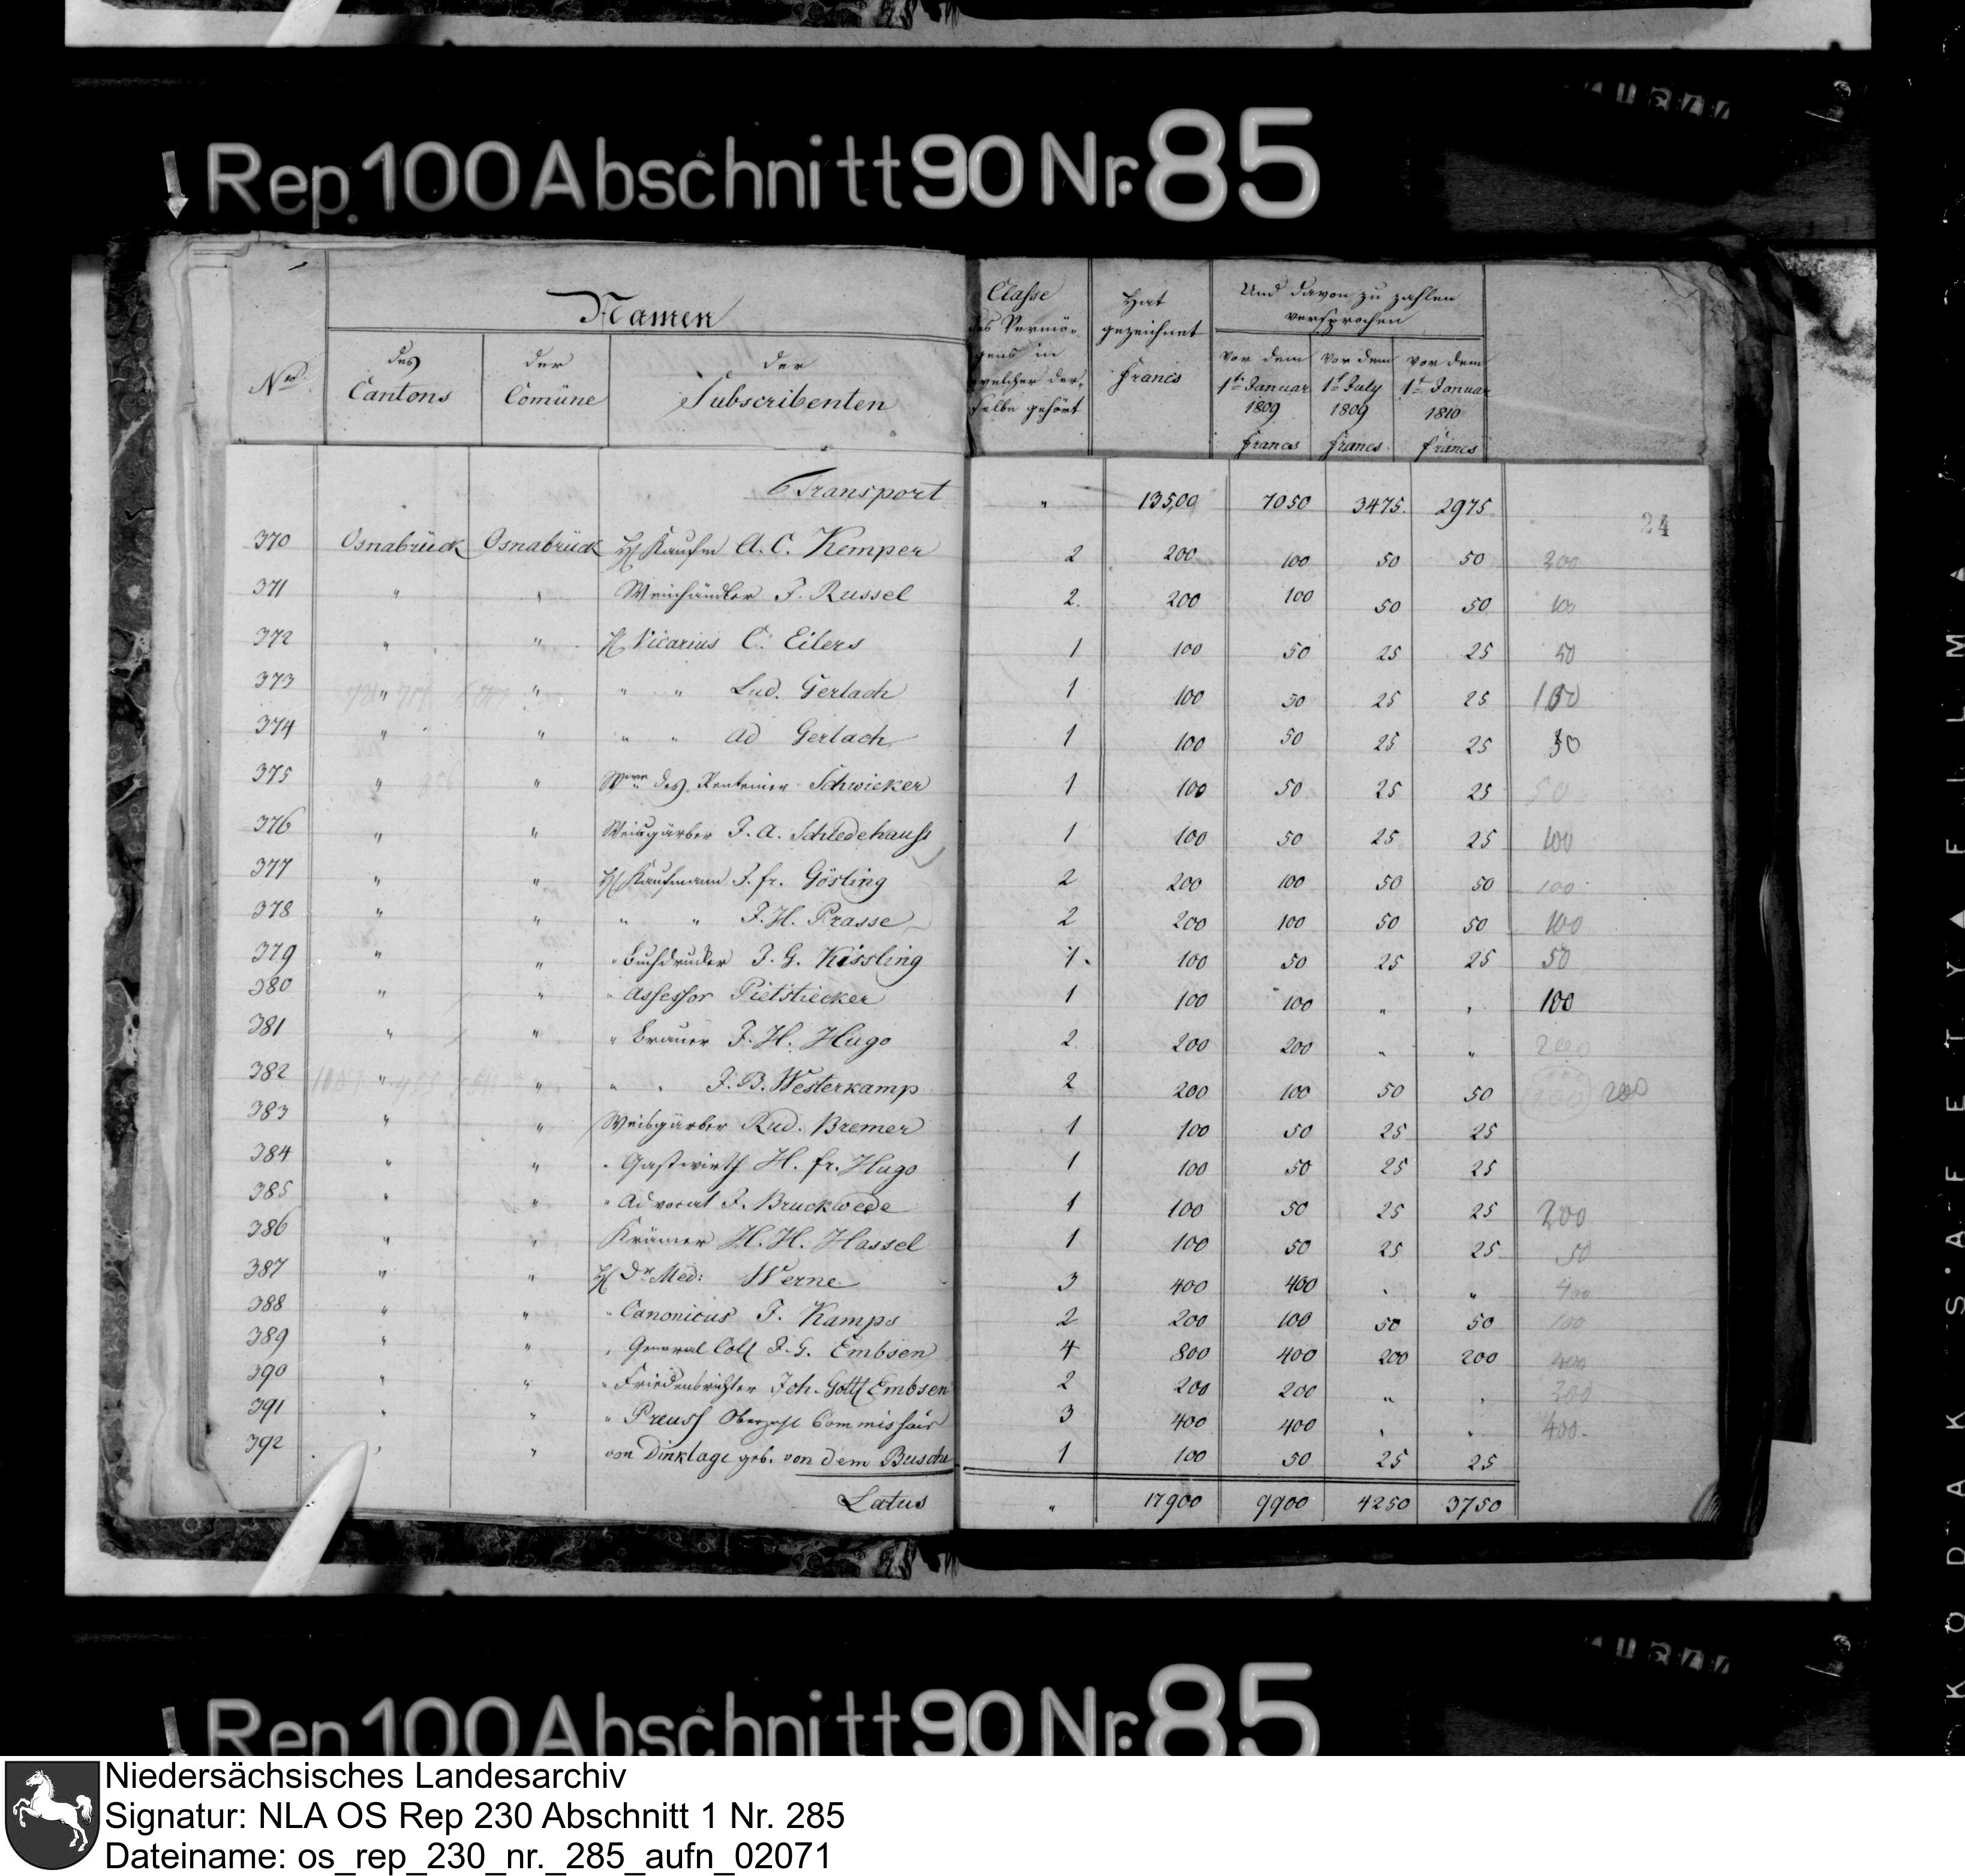 Rep. 100 Abschnitt 90 Nr. 85
Namen
Classe des Vermögens in welcher derselbe gehört
Hat gezeichnet Francs
Und davon zu zahlen versprochen
Nro. des Cantons der Comüne der Subscribenten
vor dem 1ten Januar 1809 Francs
vor dem 1t July 1809 Francs
vor dem 1t Januar 1810 Francs
24
Transport " 13500 7050 3475. 2975
370 Osnabrück Osnabrück H Kaufm A. C. Kemper 2 200 100 50 50 200
371 " " Weinhändler F. Russel 2. 200 100 50 50 100
372 " " H Vicarius C. Eilers 1 100 50 25 25 50
373 " " " " Lud. Gerlach 1 100 50 25 25 100
374 " " " " Ad Gerlach 1 100 50 25 25 50
375 " " Wwe des Rentmeier Schwicker 1 100 50 25 25 50
376 " " Weisgärber J. A. Schledehaus 1 100 50 25 25 100
377 " " H Kaufmann J. fr. Gösling 2 200 100 50 50 100
378 " " " " J. H. Prasse 2 200 100 50 50 100
379 " " " Buchdrucker J. G. Kissling 1. 100 50 25 25 50
380 " " " Assessor Pietstiecker 1 100 100 " " 100
381 " " " Brauer J. H. Hugo 2 200 200 " " 200
382 " " " " J. B. Westerkamp 2 200 100 50 50 (200) 200
383 " " Weisgärber Rud. Bremer 1 100 50 25 25
384 " " " Gastwirth H. fr. Hugo 1 100 50 25 25
385 " " " Advocat J. Bruckwede 1 100 50 25 25 200
386 " " Krämer H. H. Hassel 1 100 50 25 25 50
387 " " H Dr Med: Werne 3 400 400 " " 400
388 " " " Canonicus J. Kamps 2 200 100 50 50 100
389 " " " General Coll J. G. Embsen 4 800 400 200 200 400
390 " " " Friedensrichter Joh. Gottf Embsen 2 200 200 " " 200
391 " " " Preuss Commissair 3 400 400 " " 400.
392 " " von Dinklage geb. von dem Busche 1 100 50 25 25
Latus " 17900 9900 4250 3750
Rep 100 Abschnitt 90 Nr. 85
KODAK SAFETY FILM
Niedersächsisches Landesarchiv
Signatur: NLA OS Rep 230 Abschnitt 1 Nr. 285
Dateiname: os_rep_230_nr._285_aufn_02071